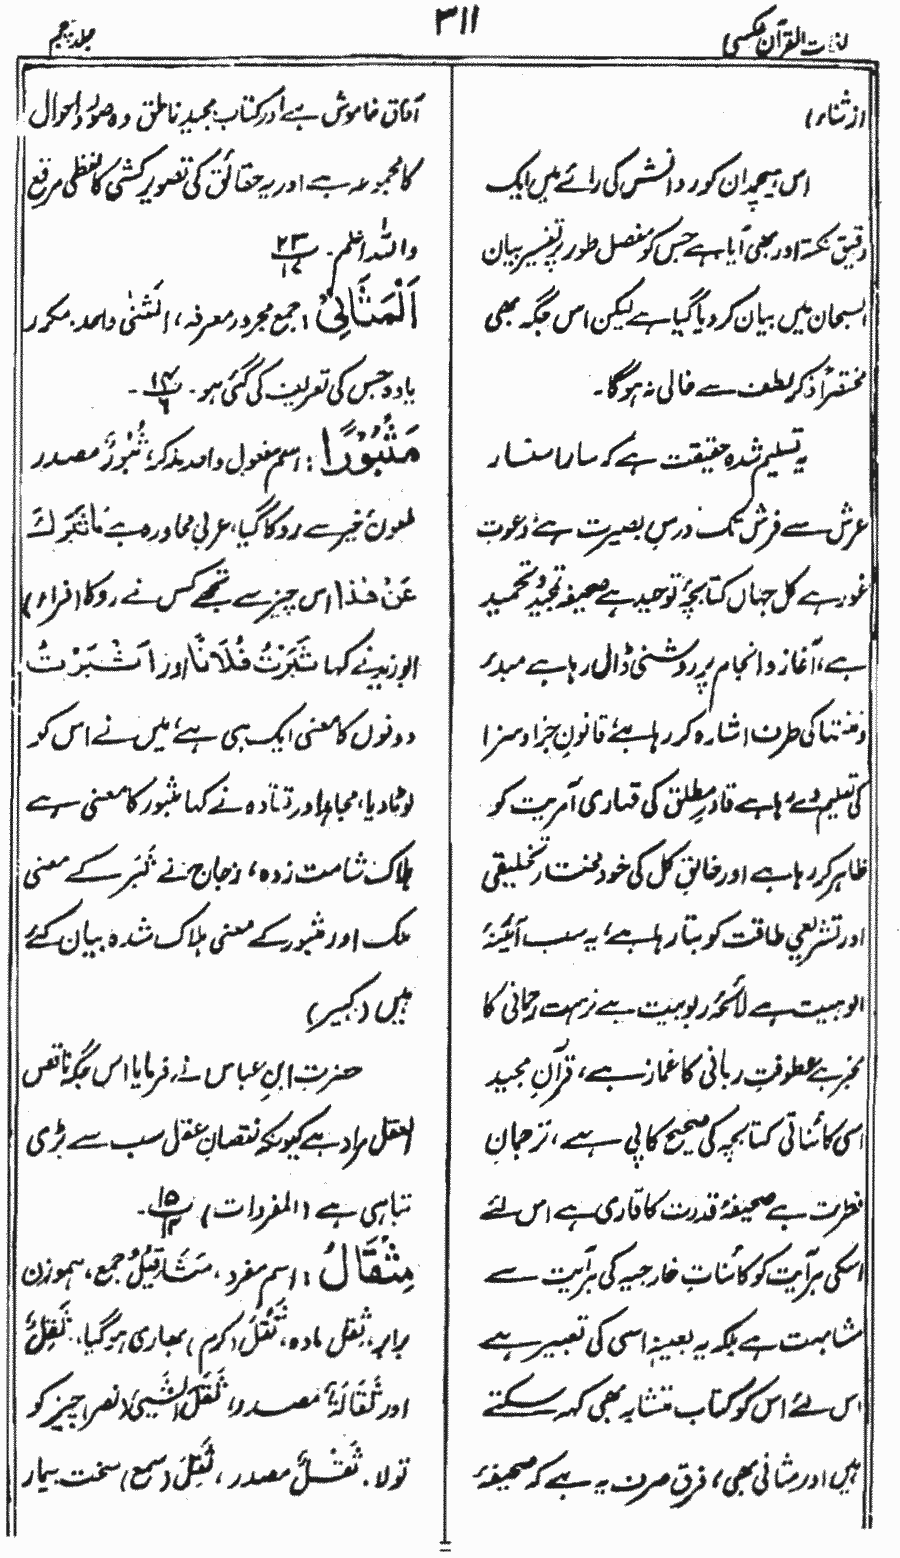 لغات القرآن عکسی
۳۱۱
جلد پنجم
از ثناء)
اس ہیچمدان کور دانش کی رائے میں ایک
دقیق نکتہ اور بھی آیا ہے جس کو مفصل طور پر تفسیر بیان
السبحان میں بیان کر دیا گیا ہے لیکن اس جگہ بھی
مختصراً ذکر لطف سے خالی نہ ہوگا۔
یہ تسلیم شدہ حقیقت ہے کہ سارا سنسار
عرش سے فرش تک درسِ بصیرت ہے، دعوت
غور ہے کل جہاں کتابچۂ توحید ہے صحیفہ تمجید و تحمید
ہے، آغاز و انجام پر روشنی ڈال رہا ہے مبدء
و منتہا کی طرف اشارہ کر رہا ہے، قانونِ جزا و سزا
کی تعلیم دے رہا ہے قادرِ مطلق کی قہاری آمریت کو
ظاہر کر رہا ہے اور خالقِ کل کی خود مختار تخلیقی
اور تشریعی طاقت کو بتا رہا ہے، یہ سب آئینۂ
الوہیت ہے لائحۂ ربوبیت ہے نزہت رحمانی کا
مخبر ہے عطوفتِ ربانی کا غماز ہے، قرآنِ مجید
اسی کائناتی کتابچہ کی صحیح کاپی ہے، ترجمان
فطرت ہے صحیفۂ قدرت کا قاری ہے اس لئے
اسکی ہر آیت کو کائنات خارجیہ کی ہر آیت سے
مشابہت ہے بلکہ یہ بعینہٖ اسی کی تعبیر ہے
اس لئے اس کو کتاب متشابہ بھی کہہ سکتے
ہیں اور مثانی بھی، فرق صرف یہ ہے کہ صحیفۂ
آفاق خاموش ہے اور کتاب مجید ناطق وہ صور و احوال
کا مجموعہ ہے اور یہ حقائق کی تصویر کشی کا لفظی مرقع
واللہ اعلم۔ ۲۳/۱۷
اَلْمَثَانِیْ: جمع مجرور معرفہ، المثنٰی واحد۔ مکرر
یا دو جس کی تعریف کی گئی ہو۔ ۱۴/۶۔
مَثْبُوْرًا: اسم مفعول واحد مذکر، ثُبُوْرٌ مصدر
ملعون، خیر سے روکا گیا، عربی محاورہ ہے مَا ثَبَرَكَ
عَنْ هٰذَا اس چیز سے تجھے کس نے روکا (فراء)
ابو زید نے کہا ثَبَرْتُ فُلَانًا اور اَثْبَرْتُ
دونوں کا معنی ایک ہی ہے، میں نے اس کو
لوٹا دیا، مجاہد اور قتادہ نے کہا مثبور کا معنی ہے
ہلاک شامت زدہ، زجاج نے ثُبِرَ کے معنی
ھلک اور مثبور کے معنی ہلاک شدہ بیان کئے
ہیں (کبیر)
حضرت ابن عباس نے فرمایا اس جگہ ناقص
العقل مراد ہے کیونکہ نقصانِ عقل سب سے بڑی
تباہی ہے (المفردات) ۱۵/۱۲۔
مِثْقَالُ: اسم مفرد، مَثَاقِیْلُ جمع، ہموزن
برابر، ثِقل مادہ، ثَقُلَ (کرم) بھاری ہو گیا، ثِقَلٌ
اور ثَقَالَۃٌ مصدر، ثَقَلَ الشَّیْءَ (نصر) چیز کو
تولا۔ ثَقْلٌ مصدر، ثَقِلَ (سمع) سخت بیمار